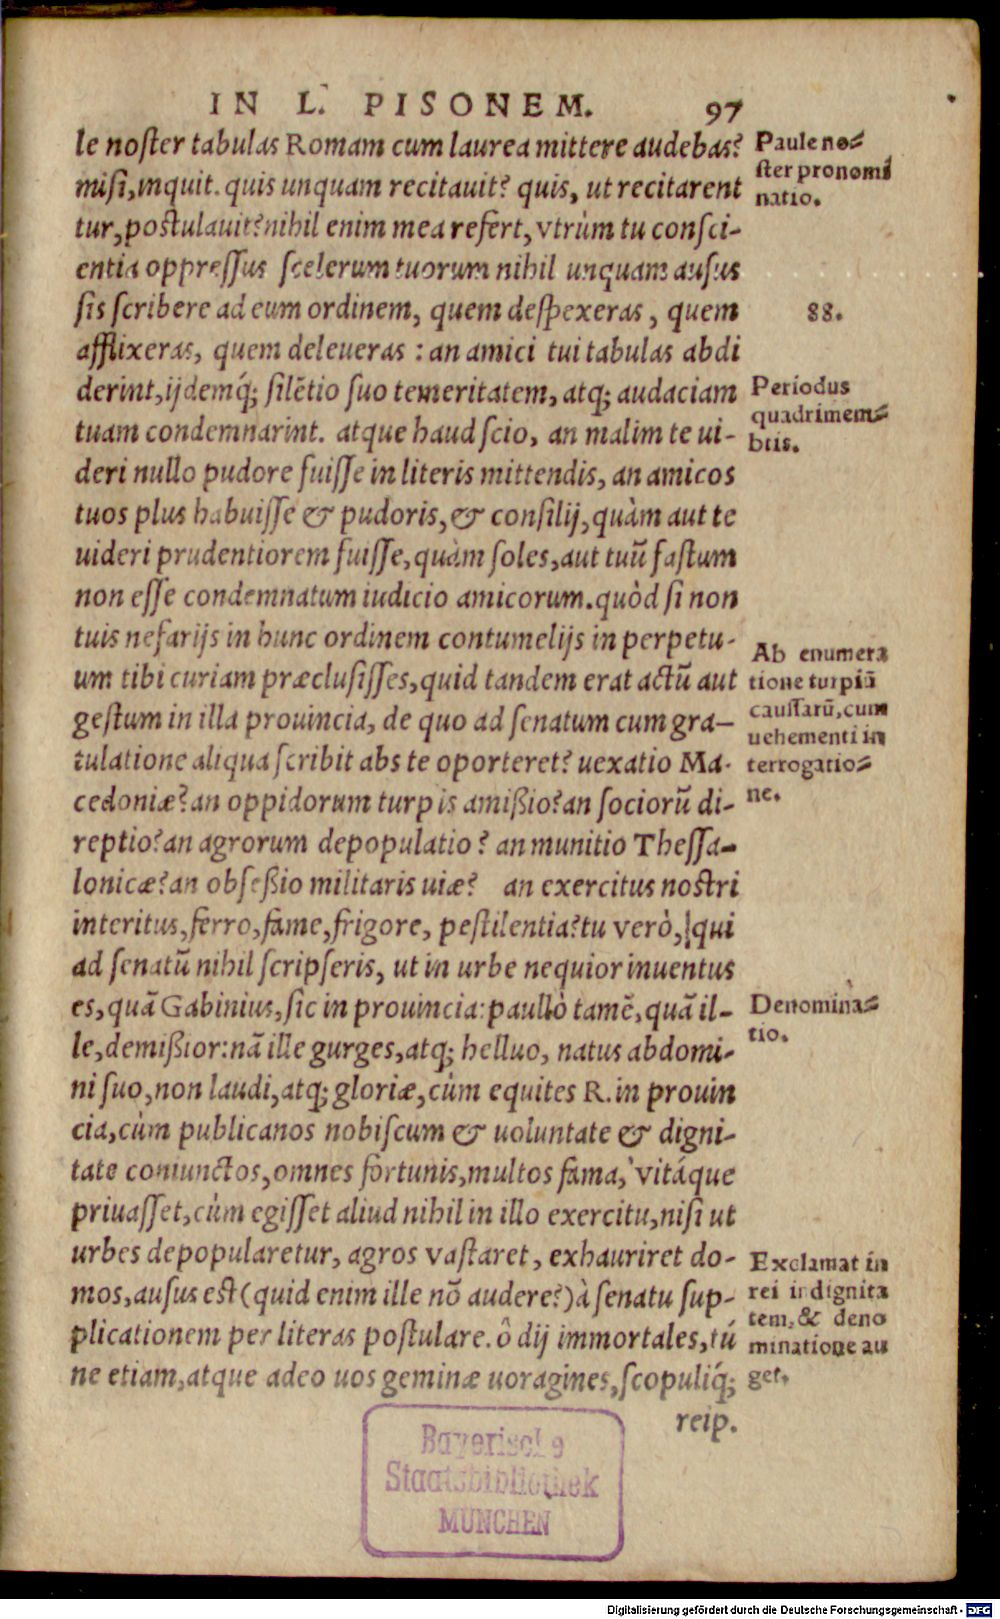 IN L. PISONEM. 97
le noster tabulas Romam cum laurea mittere audebas?
misi, inquit. quis unquam recitauit? quis, ut recitarent
tur, postulauit? nihil enim mea refert, vtrùm tu consci-
entia oppressus scelerum tuorum nihil unquam ausus
sis scribere ad eum ordinem, quem despexeras, quem
afflixeras, quem deleueras: an amici tui tabulas abdi
derint, ijdemq́; silētio suo temeritatem, atq; audaciam
tuam condemnarint. atque haud scio, an malim te ui-
deri nullo pudore fuisse in literis mittendis, an amicos
tuos plus habuisse & pudoris, & consilij, quàm aut te
uideri prudentiorem fuisse, quàm soles, aut tuū fastum
non esse condemnatum iudicio amicorum. quòd si non
tuis nefarijs in hunc ordinem contumelijs in perpetu-
um tibi curiam præclusisses, quid tandem erat actū aut
gestum in illa prouincia, de quo ad senatum cum gra-
tulatione aliqua scribit abs te oporteret? uexatio Ma-
cedoniæ? an oppidorum turpis amißio? an sociorū di-
reptio? an agrorum depopulatio? an munitio Thessa-
lonicæ? an obseßio militaris uiæ? an exercitus nostri
interitus, ferro, fame, frigore, pestilentia? tu verò, qui
ad senatū nihil scripseris, ut in urbe nequior inuentus
es, quā Gabinius, sic in prouincia: paullò tamē, quā il-
le, demißior: nā ille gurges, atq; helluo, natus abdomi-
ni suo, non laudi, atq; gloriæ, cùm equites R. in prouin
cia, cùm publicanos nobiscum & uoluntate & digni-
tate coniunctos, omnes fortunis, multos fama, vitáque
priuasset, cùm egisset aliud nihil in illo exercitu, nisi ut
urbes depopularetur, agros vastaret, exhauriret do-
mos, ausus est (quid enim ille nō audere?) à senatu sup-
plicationem per literas postulare. ô dij immortales, tú
ne etiam, atque adeo uos geminæ uoragines, scopuliq́;
reip.
Paule no-
ster pronomi
natio.
88.
Periodus
quadrimem-
bris.
Ab enumera
tione turpiū
caussarū, cum
uehementi in
terrogatio-
ne.
Denomina-
tio.
Exclamat in
rei indignita
tem, & deno
minatione au
get.
Bayerische
Staatsbibliothek
MÜNCHEN
Digitalisierung gefördert durch die Deutsche Forschungsgemeinschaft - DFG